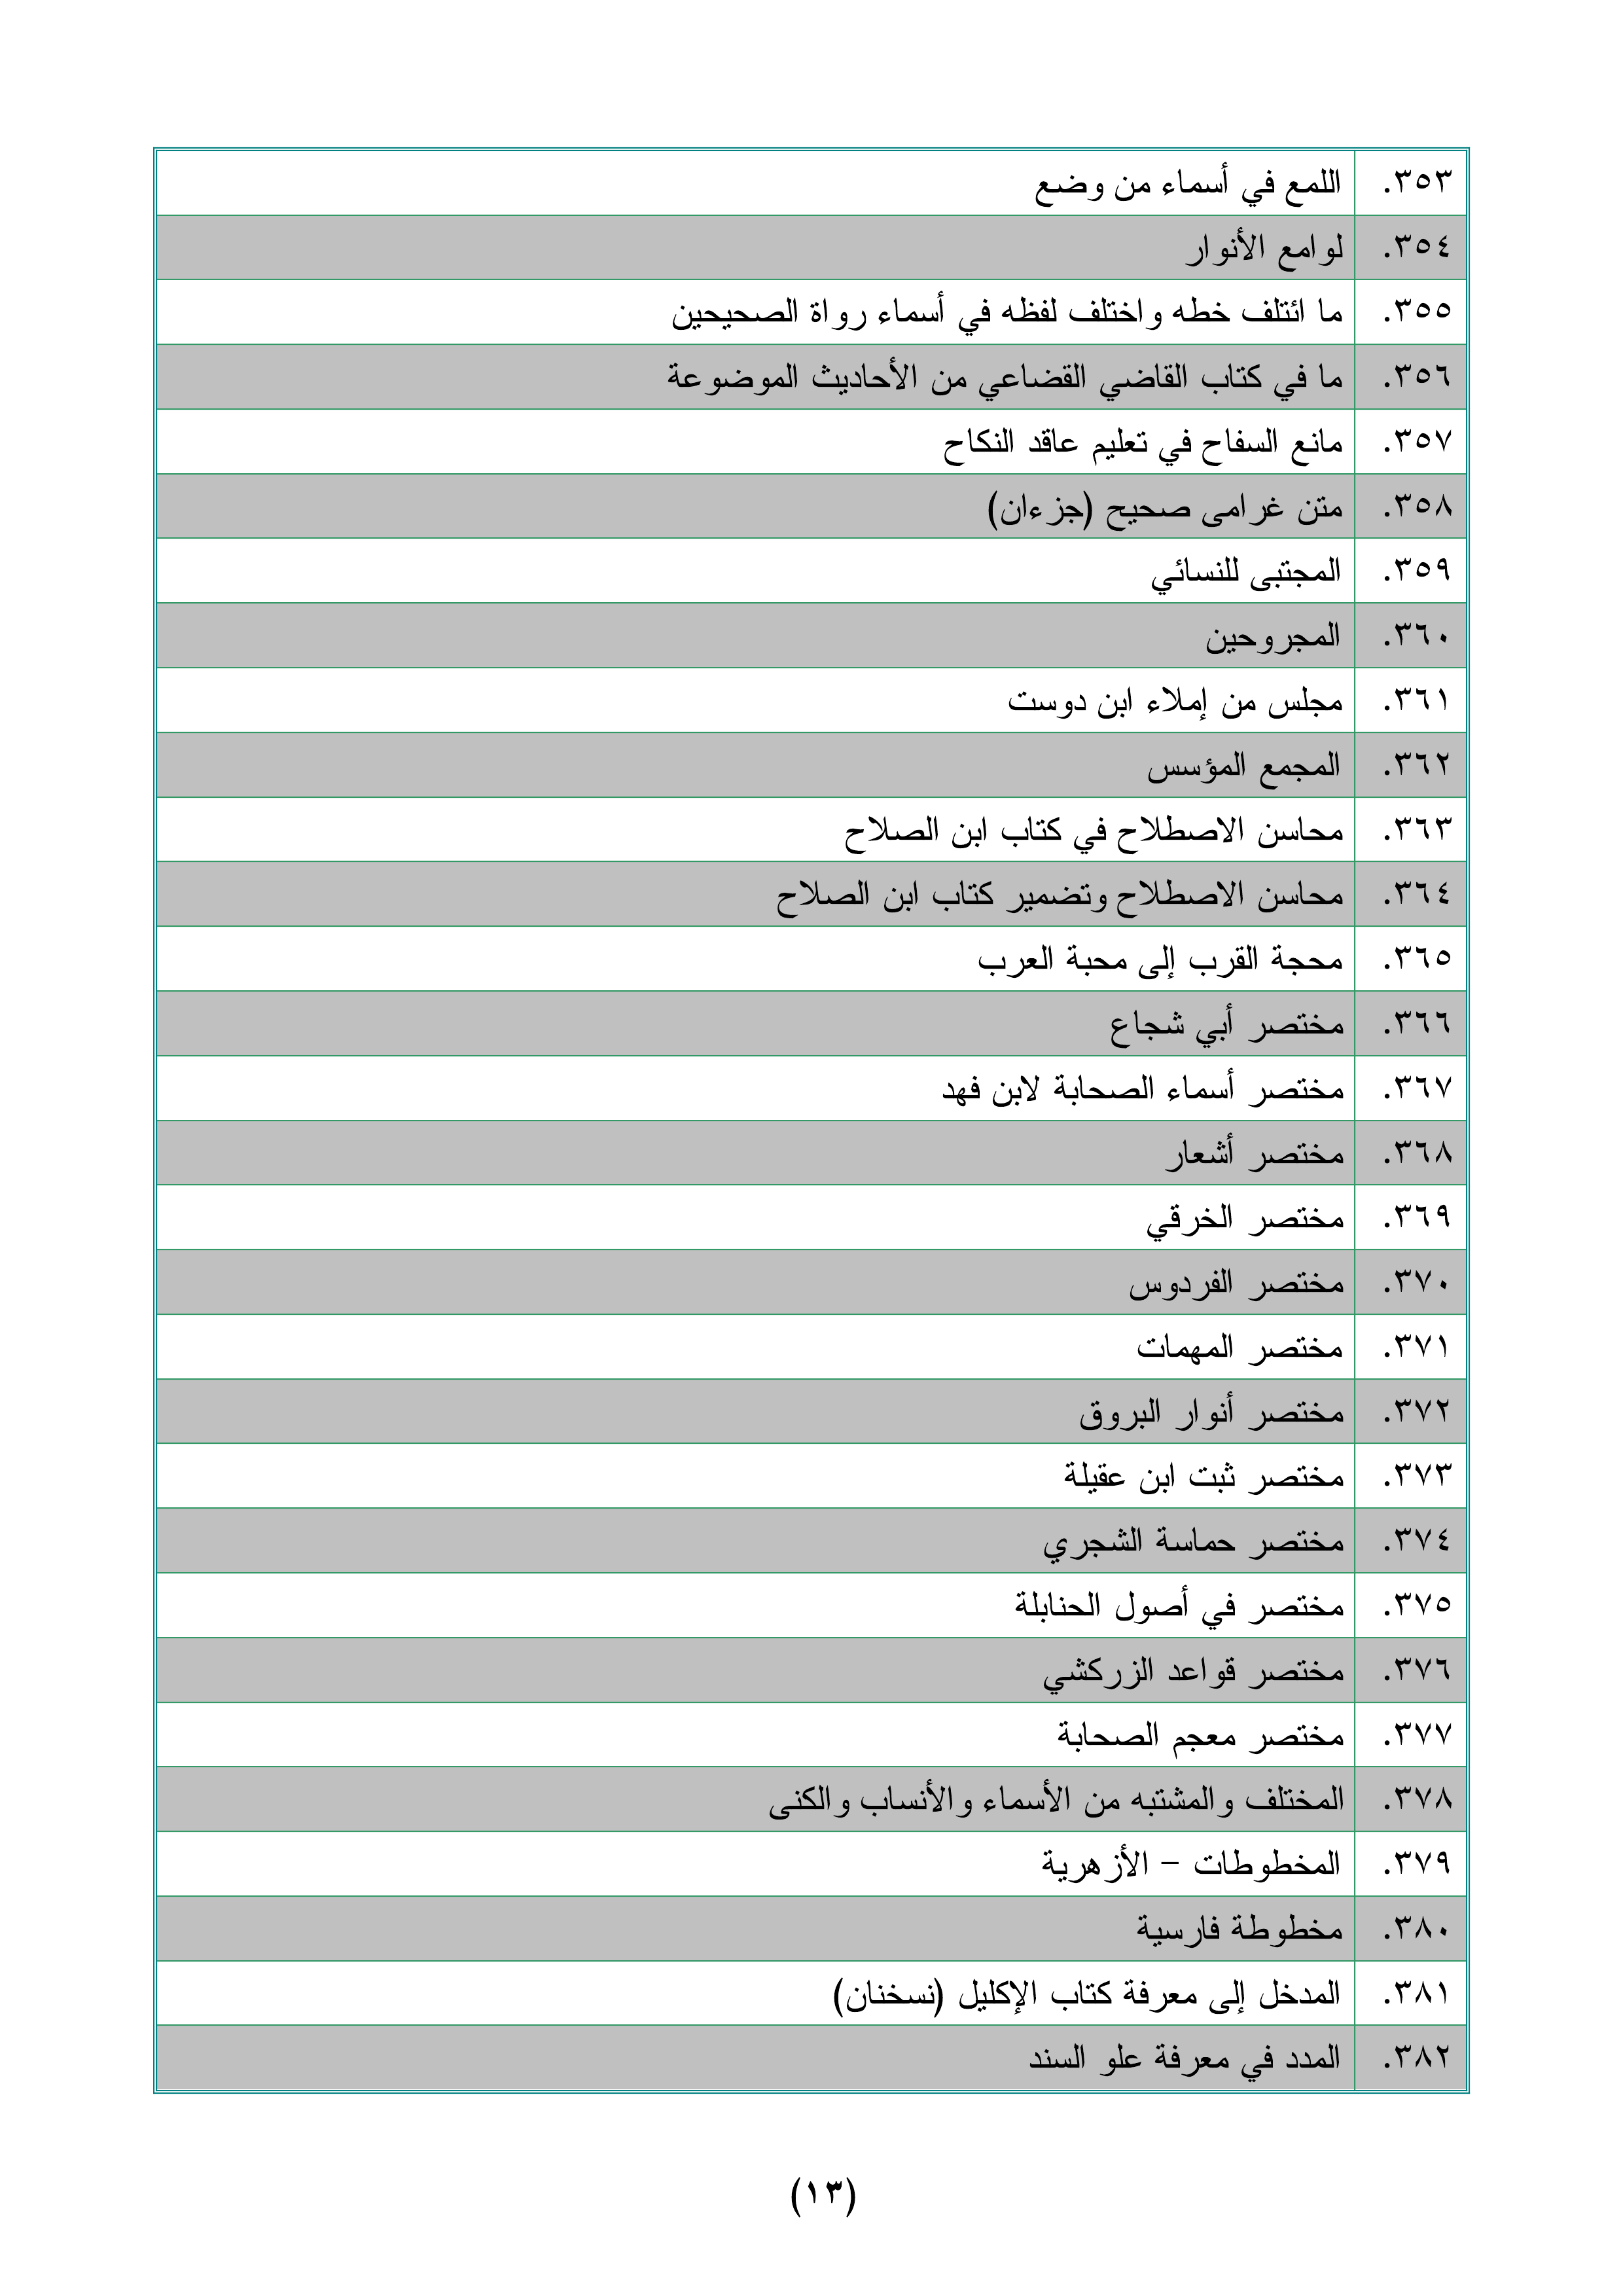 ٣٥٣. اللمع في أسماء من وضع
٣٥٤. لوامع الأنوار
٣٥٥. ما ائتلف خطه واختلف لفظه في أسماء رواة الصحيحين
٣٥٦. ما في كتاب القاضي القضاعي من الأحاديث الموضوعة
٣٥٧. مانع السفاح في تعليم عاقد النكاح
٣٥٨. متن غرامى صحيح (جزءان)
٣٥٩. المجتبى للنسائي
٣٦٠. المجروحين
٣٦١. مجلس من إملاء ابن دوست
٣٦٢. المجمع المؤسس
٣٦٣. محاسن الاصطلاح في كتاب ابن الصلاح
٣٦٤. محاسن الاصطلاح وتضمير كتاب ابن الصلاح
٣٦٥. محجة القرب إلى محبة العرب
٣٦٦. مختصر أبي شجاع
٣٦٧. مختصر أسماء الصحابة لابن فهد
٣٦٨. مختصر أشعار
٣٦٩. مختصر الخرقي
٣٧٠. مختصر الفردوس
٣٧١. مختصر المهمات
٣٧٢. مختصر أنوار البروق
٣٧٣. مختصر ثبت ابن عقيلة
٣٧٤. مختصر حماسة الشجري
٣٧٥. مختصر في أصول الحنابلة
٣٧٦. مختصر قواعد الزركشي
٣٧٧. مختصر معجم الصحابة
٣٧٨. المختلف والمشتبه من الأسماء والأنساب والكنى
٣٧٩. المخطوطات – الأزهرية
٣٨٠. مخطوطة فارسية
٣٨١. المدخل إلى معرفة كتاب الإكليل (نسخنان)
٣٨٢. المدد في معرفة علو السند
(١٣)